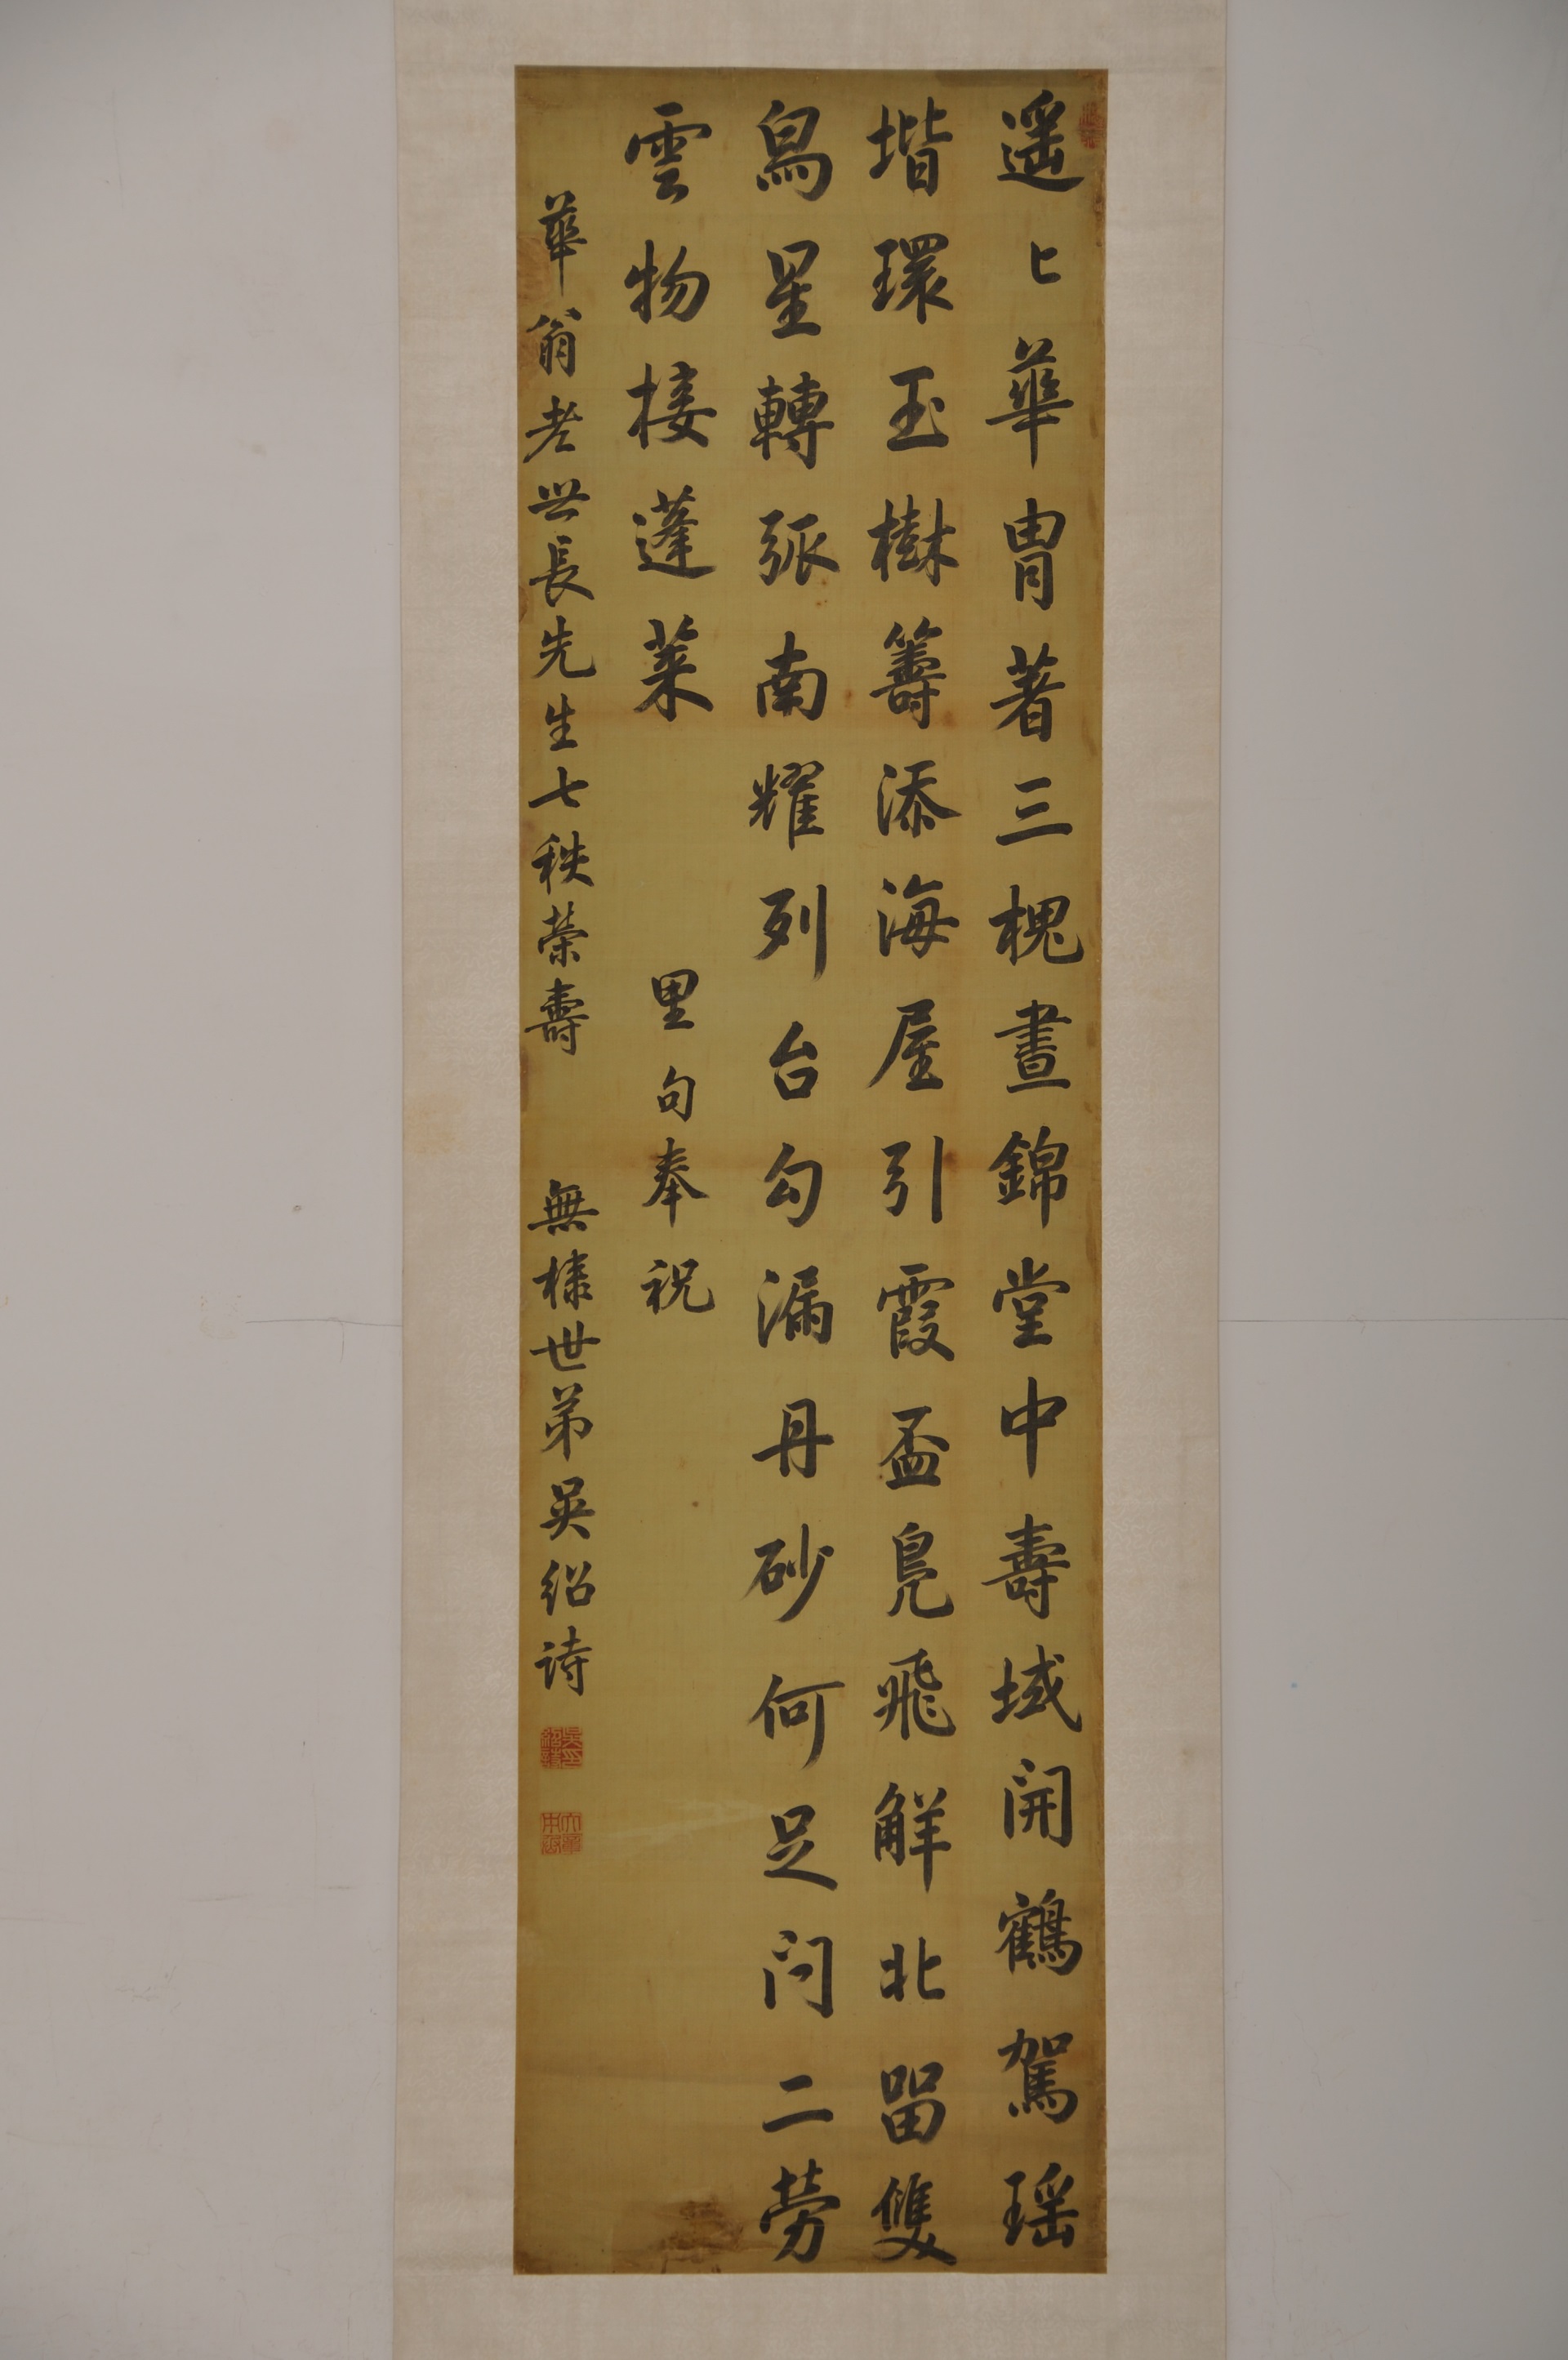 遥〻華胄著三槐晝錦堂中壽域開鶴駕瑶
堦環玉樹籌添海屋引霞盃鳧飛觧北留雙
舄星轉弧南耀列台勾漏丹砂何足问二勞
雲物接蓬莱
里句奉祝
華翁老世長先生七秩荣壽
無棣世弟吴绍诗